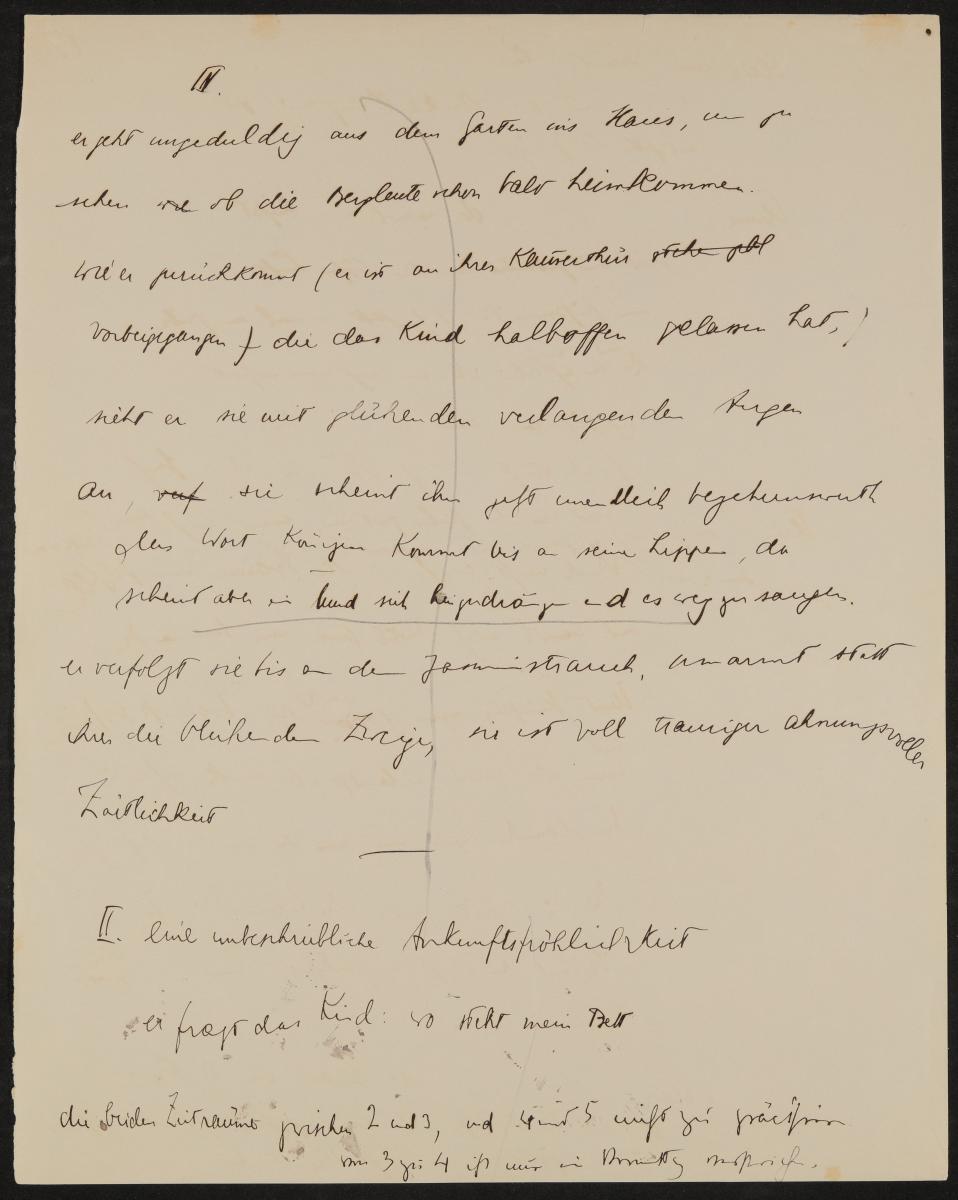 IV.
er geht ungeduldig aus dem Garten ins Haus, um zu
sehen wie ob die Bergleute schon bald heimkommen.
wie er zurückkommt (er ist an ihrer Kammerthür
vorbeigegangen) die das Kind halboffen gelassen hat,)
sieht er sie mit glühenden verlangenden Augen
an, sie scheint ihm jetzt unendlich begehrenswerth
das Wort Königin kommt bis an seine Lippen, da
scheint aber ein Mund sich hinzudrängen und es wegzusaugen.
er verfolgt sie bis an den Jasminstrauch, umarmt statt
ihrer die blühenden Zweige, sie ist voll trauriger ahnungsvoller
Zärtlichkeit
II. eine unbeschreibliche Ankunftsfröhlichkeit
er fragt das Kind: wo steht mein Bett
die beiden Zeiträume zwischen 2 und 3, und 4 und 5 nicht zu präcisieren
von 3 zu 4 ist nur ein